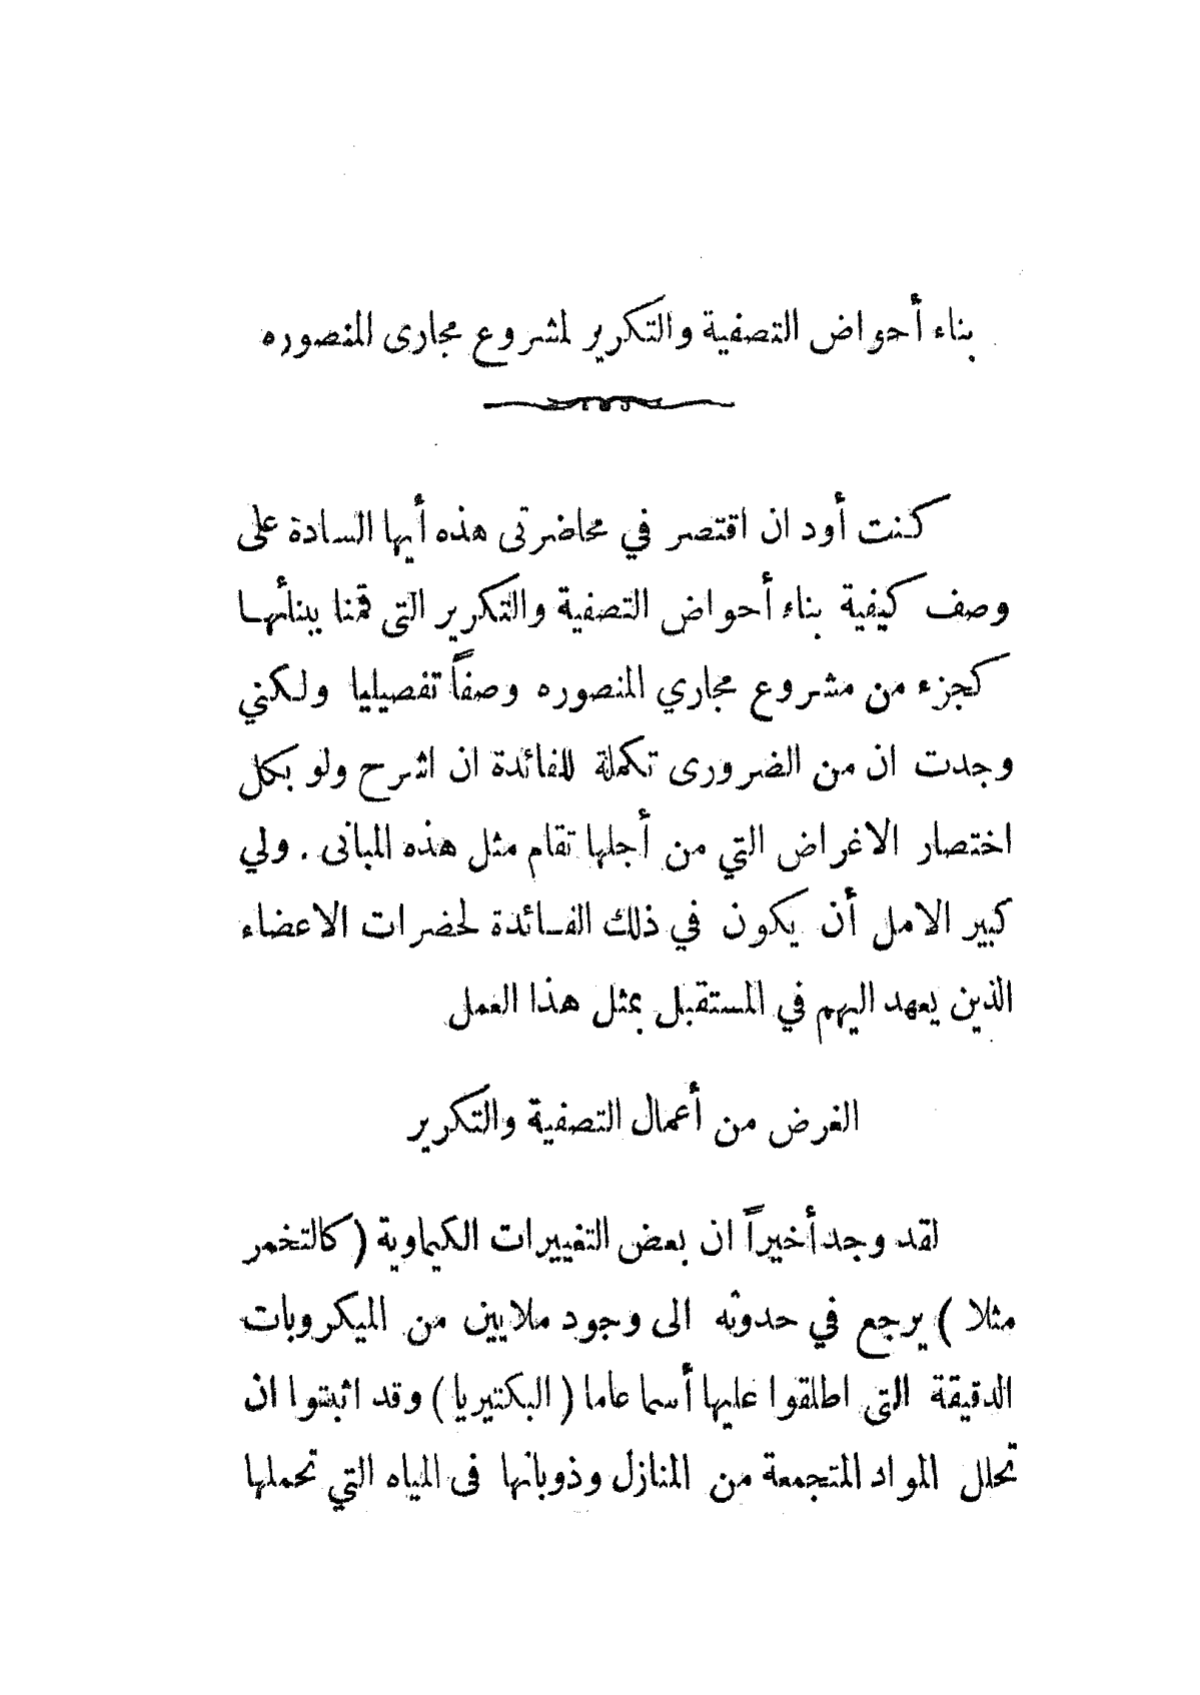 بناء أحواض التصفية والتكرير لمشروع مجارى المنصوره
كنت أود ان اقتصر في محاضرتى هذه أيها السادة على
وصف كيفية بناء أحواض التصفية والتكرير التى قمنا ببنائها
كجزء من مشروع مجاري المنصوره وصفاً تفصيليا ولكني
وجدت ان من الضرورى تكملة للفائدة ان اشرح ولو بكل
اختصار الاغراض التي من أجلها تقام مثل هذه المبانى . ولي
كبير الامل أن يكون في ذلك الفائدة لحضرات الاعضاء
الذين يعهد اليهم في المستقبل بمثل هذا العمل
الغرض من أعمال التصفية والتكرير
لقد وجد أخيراً ان بعض التغييرات الكيماوية (كالتخمر
مثلا ) يرجع في حدوثه الى وجود ملايين من الميكروبات
الدقيقة التى اطلقوا عليها أسما عاما ( البكتيريا ) وقد اثبتوا ان
تحلل المواد المتجمعة من المنازل وذوبانها فى المياه التي تحملها